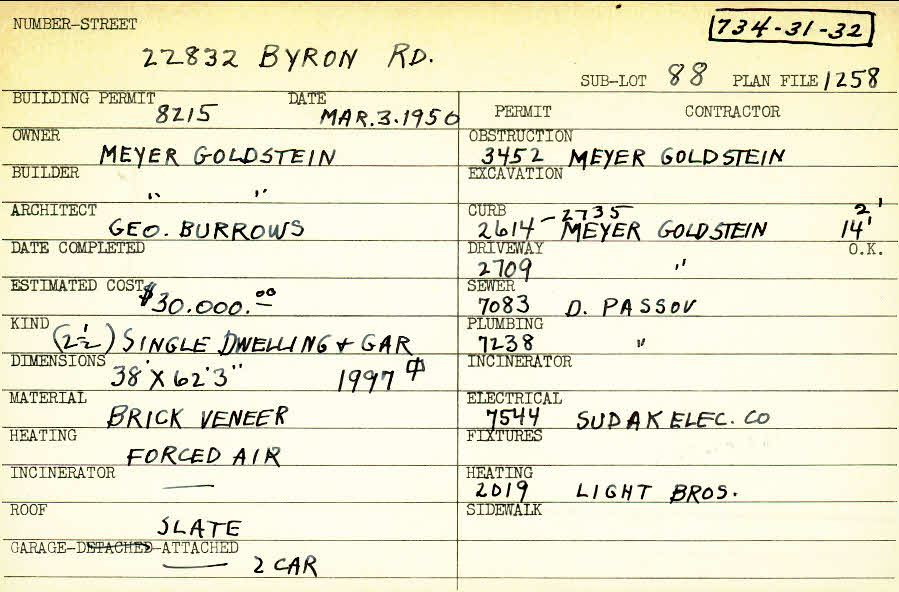 NUMBER-STREET
734-31-32
22832 BYRON RD.
SUB-LOT 88 PLAN FILE 1258
BUILDING PERMIT DATE
8215 MAR.3.1950
PERMIT CONTRACTOR
OWNER
MEYER GOLDSTEIN
OBSTRUCTION
3452 MEYER GOLDSTEIN
BUILDER
" "
EXCAVATION
ARCHITECT
GEO. BURROWS
CURB
-2735 2'
2614 MEYER GOLDSTEIN 14'
DATE COMPLETED
DRIVEWAY O.K.
2709 "
ESTIMATED COST
$30.000.00
SEWER
7083 D. PASSOV
KIND
(2½) SINGLE DWELLING + GAR
PLUMBING
7238 "
DIMENSIONS
38' X 62'3" 1997
INCINERATOR
MATERIAL
BRICK VENEER
ELECTRICAL
7544 SUDAK ELEC. CO
HEATING
FORCED AIR
FIXTURES
INCINERATOR
—
HEATING
2019 LIGHT BROS.
ROOF
SLATE
SIDEWALK
GARAGE-DETACHED-ATTACHED
2 CAR